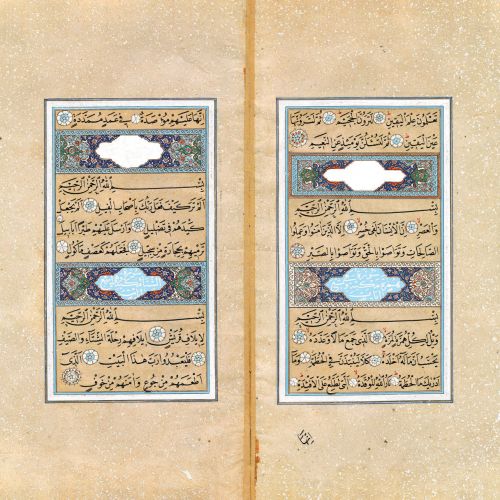 تَعْلَمُونَ عِلْمَ الْيَقِينِ لَتَرَوُنَّ الْجَحِيمَ ثُمَّ لَتَرَوُنَّهَا
عَيْنَ الْيَقِينِ ثُمَّ لَتُسْئَلُنَّ يَوْمَئِذٍ عَنِ النَّعِيمِ
بِسْمِ اللهِ الرَّحْمٰنِ الرَّحِيمِ
وَالْعَصْرِ إِنَّ الْإِنْسَانَ لَفِي خُسْرٍ إِلَّا الَّذِينَ آمَنُوا وَعَمِلُوا
الصَّالِحَاتِ وَتَوَاصَوْا بِالْحَقِّ وَتَوَاصَوْا بِالصَّبْرِ
بِسْمِ اللهِ الرَّحْمٰنِ الرَّحِيمِ
وَيْلٌ لِكُلِّ هُمَزَةٍ لُمَزَةٍ الَّذِي جَمَعَ مَالًا وَعَدَّدَهُ
يَحْسَبُ أَنَّ مَالَهُ أَخْلَدَهُ كَلَّا لَيُنْبَذَنَّ فِي الْحُطَمَةِ وَمَا
أَدْرٰيكَ مَا الْحُطَمَةُ نَارُ اللهِ الْمُوقَدَةُ الَّتِي تَطَّلِعُ عَلَى الْأَفْئِدَةِ
إنها
إِنَّهَا عَلَيْهِمْ مُؤْصَدَةٌ فِي عَمَدٍ مُمَدَّدَةٍ
بِسْمِ اللهِ الرَّحْمٰنِ الرَّحِيمِ
أَلَمْ تَرَ كَيْفَ فَعَلَ رَبُّكَ بِأَصْحَابِ الْفِيلِ أَلَمْ يَجْعَلْ
كَيْدَهُمْ فِي تَضْلِيلٍ وَأَرْسَلَ عَلَيْهِمْ طَيْرًا أَبَابِيلَ
تَرْمِيهِمْ بِحِجَارَةٍ مِنْ سِجِّيلٍ فَجَعَلَهُمْ كَعَصْفٍ مَأْكُولٍ
بِسْمِ اللهِ الرَّحْمٰنِ الرَّحِيمِ
لِإِيلَافِ قُرَيْشٍ إِيلَافِهِمْ رِحْلَةَ الشِّتَاءِ وَالصَّيْفِ
فَلْيَعْبُدُوا رَبَّ هٰذَا الْبَيْتِ الَّذِي
أَطْعَمَهُمْ مِنْ جُوعٍ وَآمَنَهُمْ مِنْ خَوْفٍ